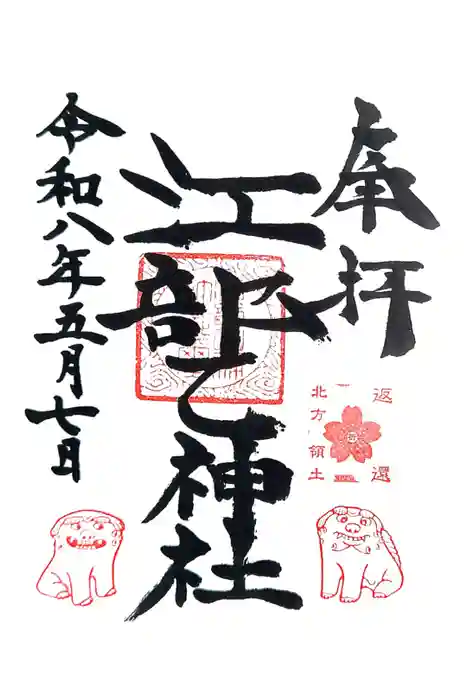 奉拝
返還
北方領土
江部乙神社
令和八年五月七日